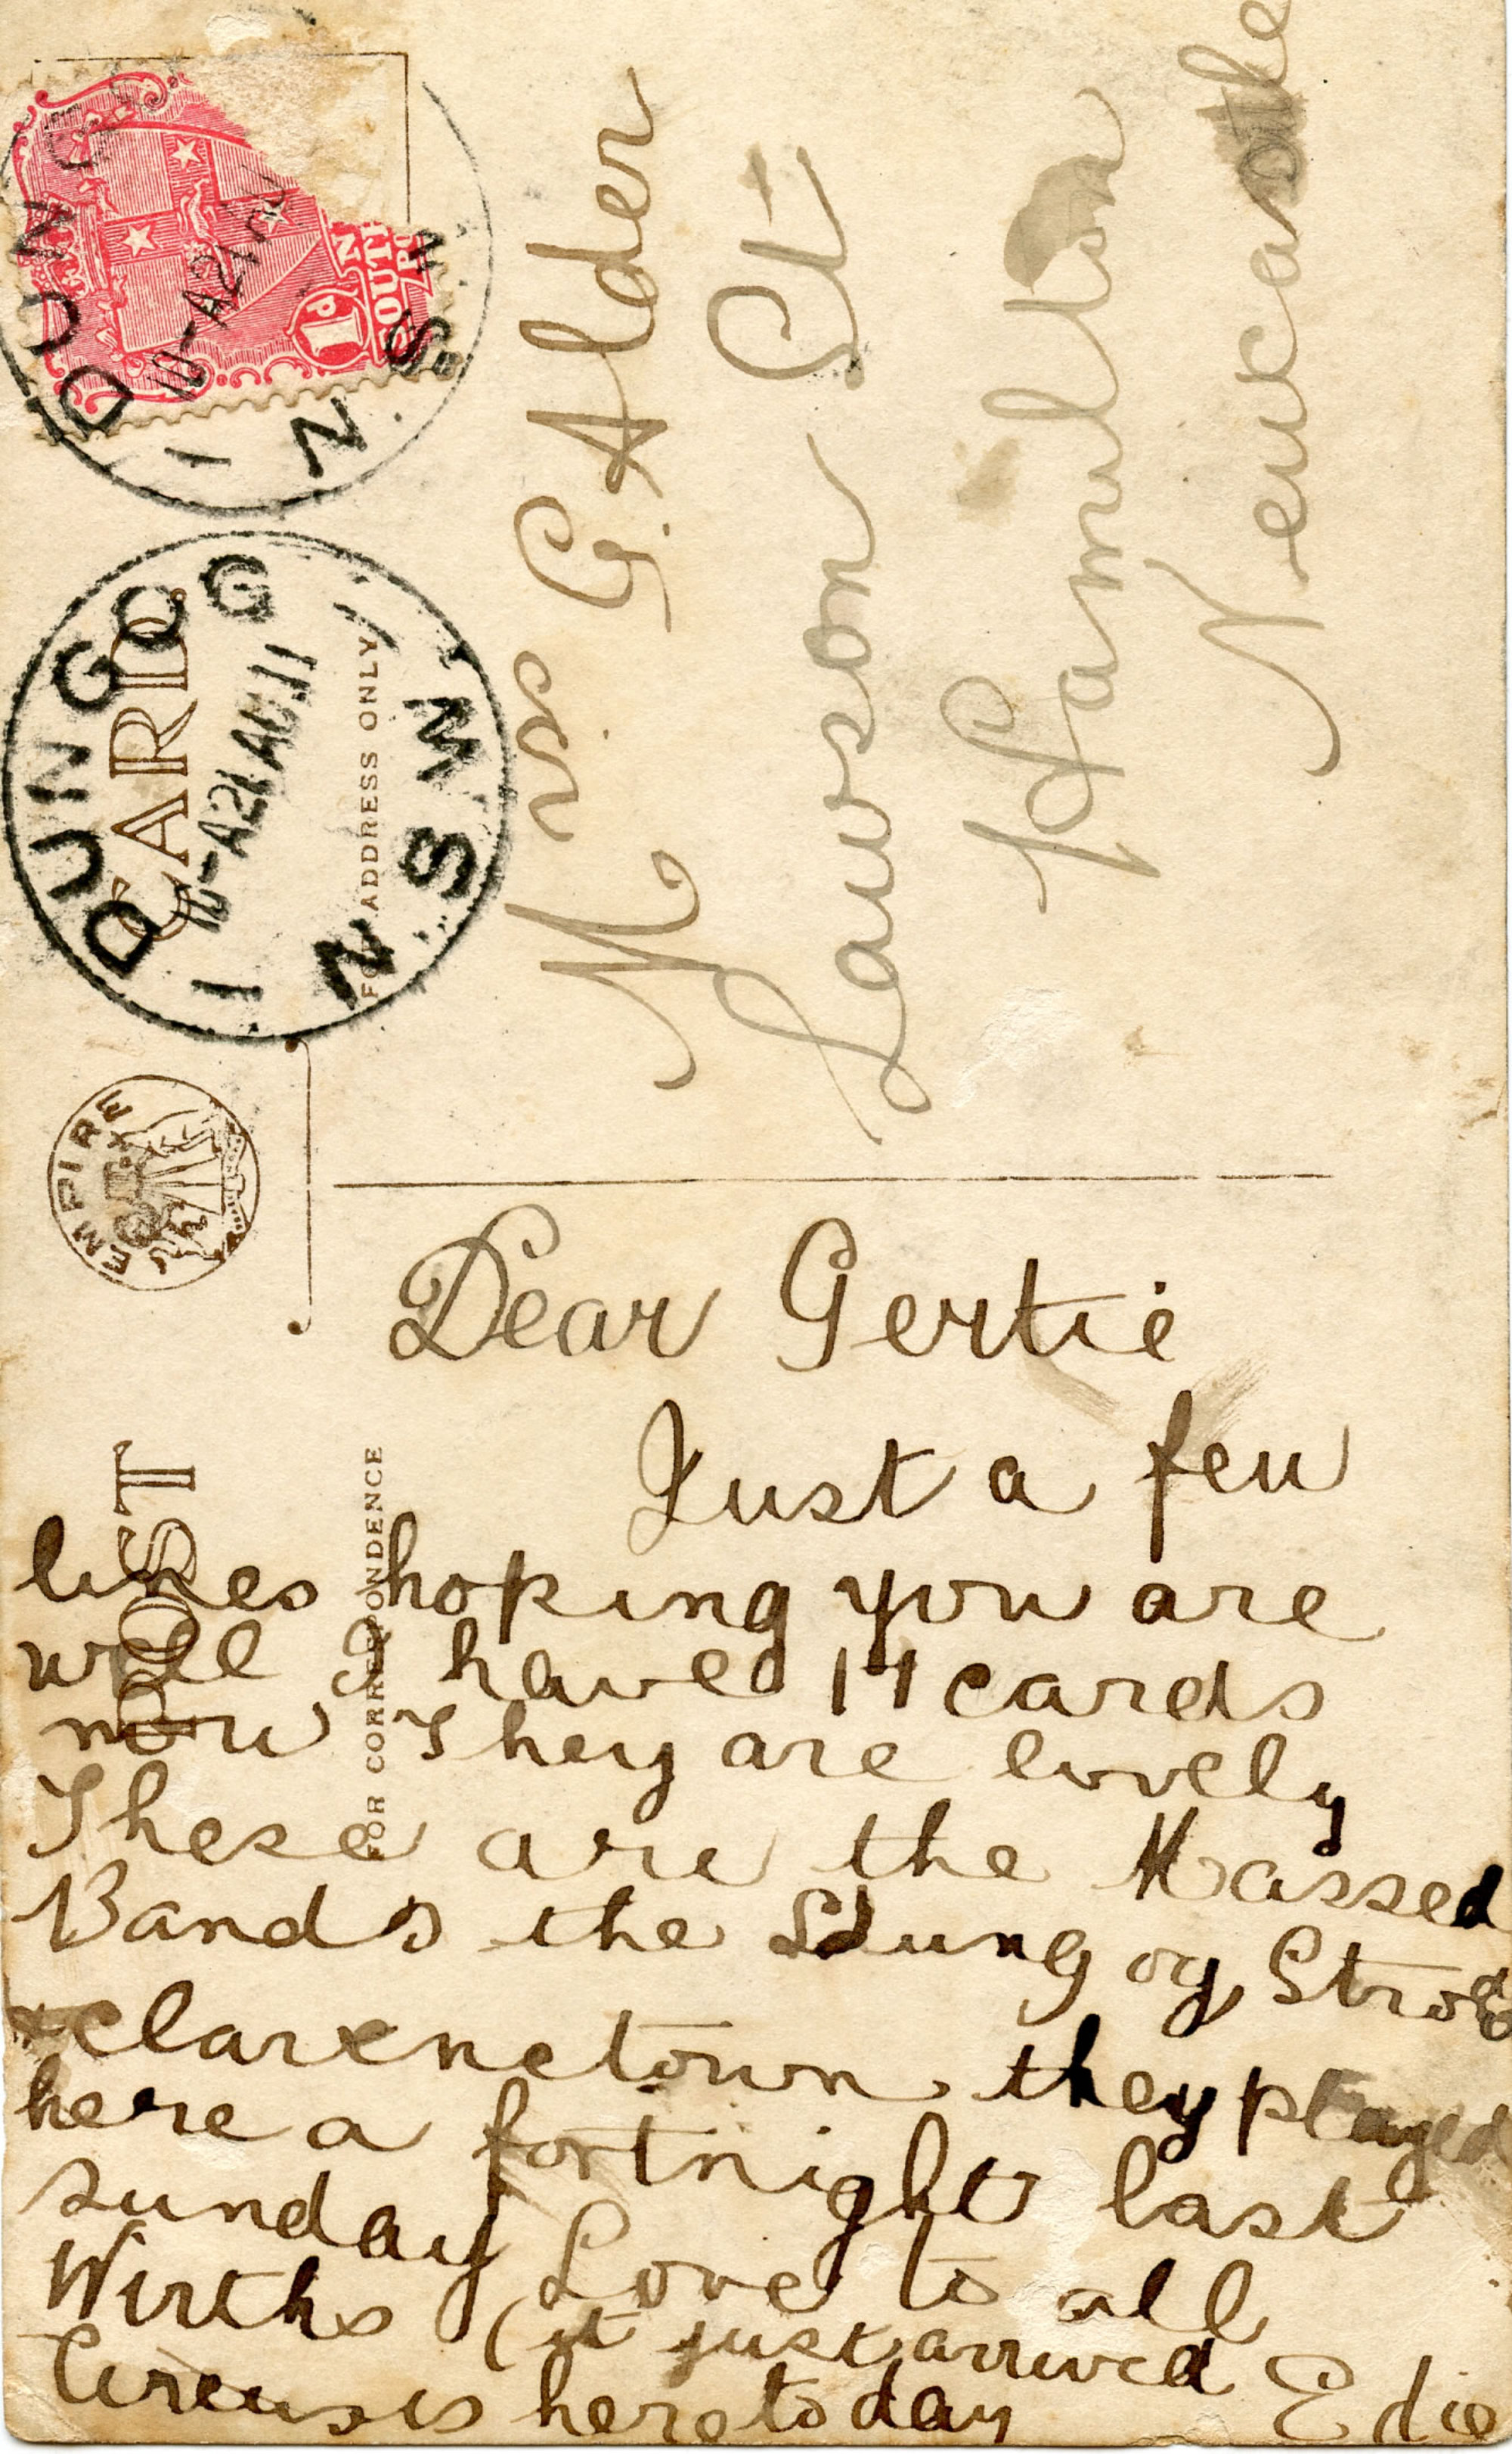 POST CARD
EMPIRE
FOR CORRESPONDENCE
FOR ADDRESS ONLY
DUNGOG
10-A 21 AU 11
1
N.S.W
DUNG
10-A 21
1
N.S.W
1d
SOUTH
Miss G. Alder
Lawson St
Hamilton
Newcastle
Dear Gertie
Just a few
lines hoping you are
well I have 14 cards
now They are lovely
These are the Massed
Bands the Dungog, Stroud
& Clarencetown. they played
here a fortnight last
sunday Love to all
Wirths (it just arrived
Circus is here to day
Edie